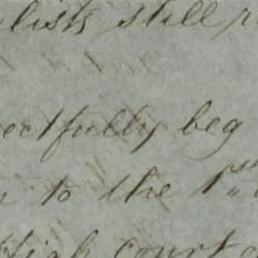 lists still
ectfully beg
to the 1st
High court